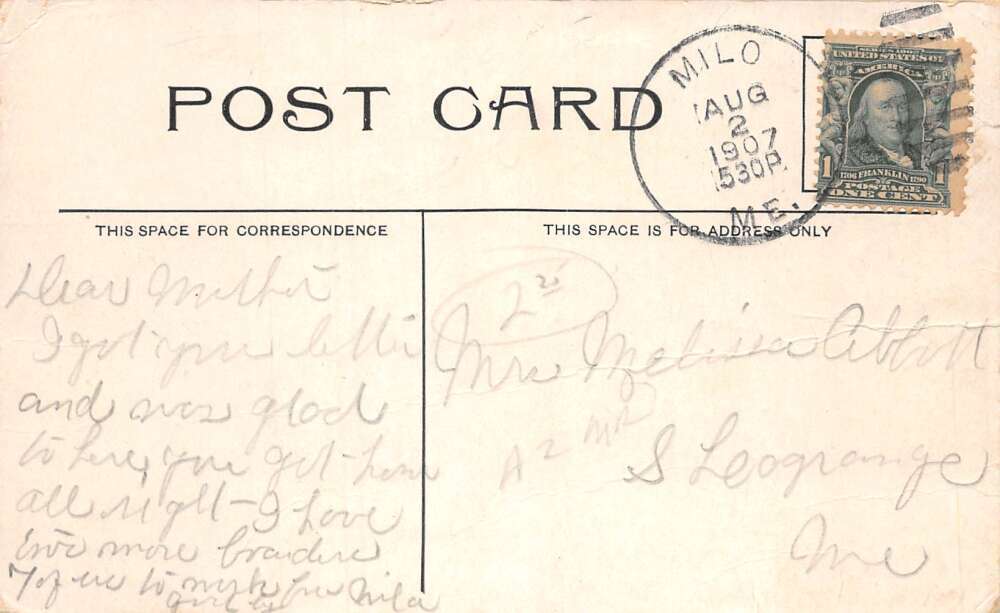 POST CARD
MILO
AUG
2
1907
530P.
ME.
SERIES 1902
UNITED STATES OF
AMERICA
1706 FRANKLIN 1790
1 POSTAGE 1
ONE CENT
THIS SPACE FOR CORRESPONDENCE
THIS SPACE IS FOR ADDRESS ONLY
Dear Mother
I got your letter
and was glad
to here you got home
all right - I have
two more
7 of us to work for
Mrs Melissa Abbott
S Leogrange
Me
2 25
A 2 MR